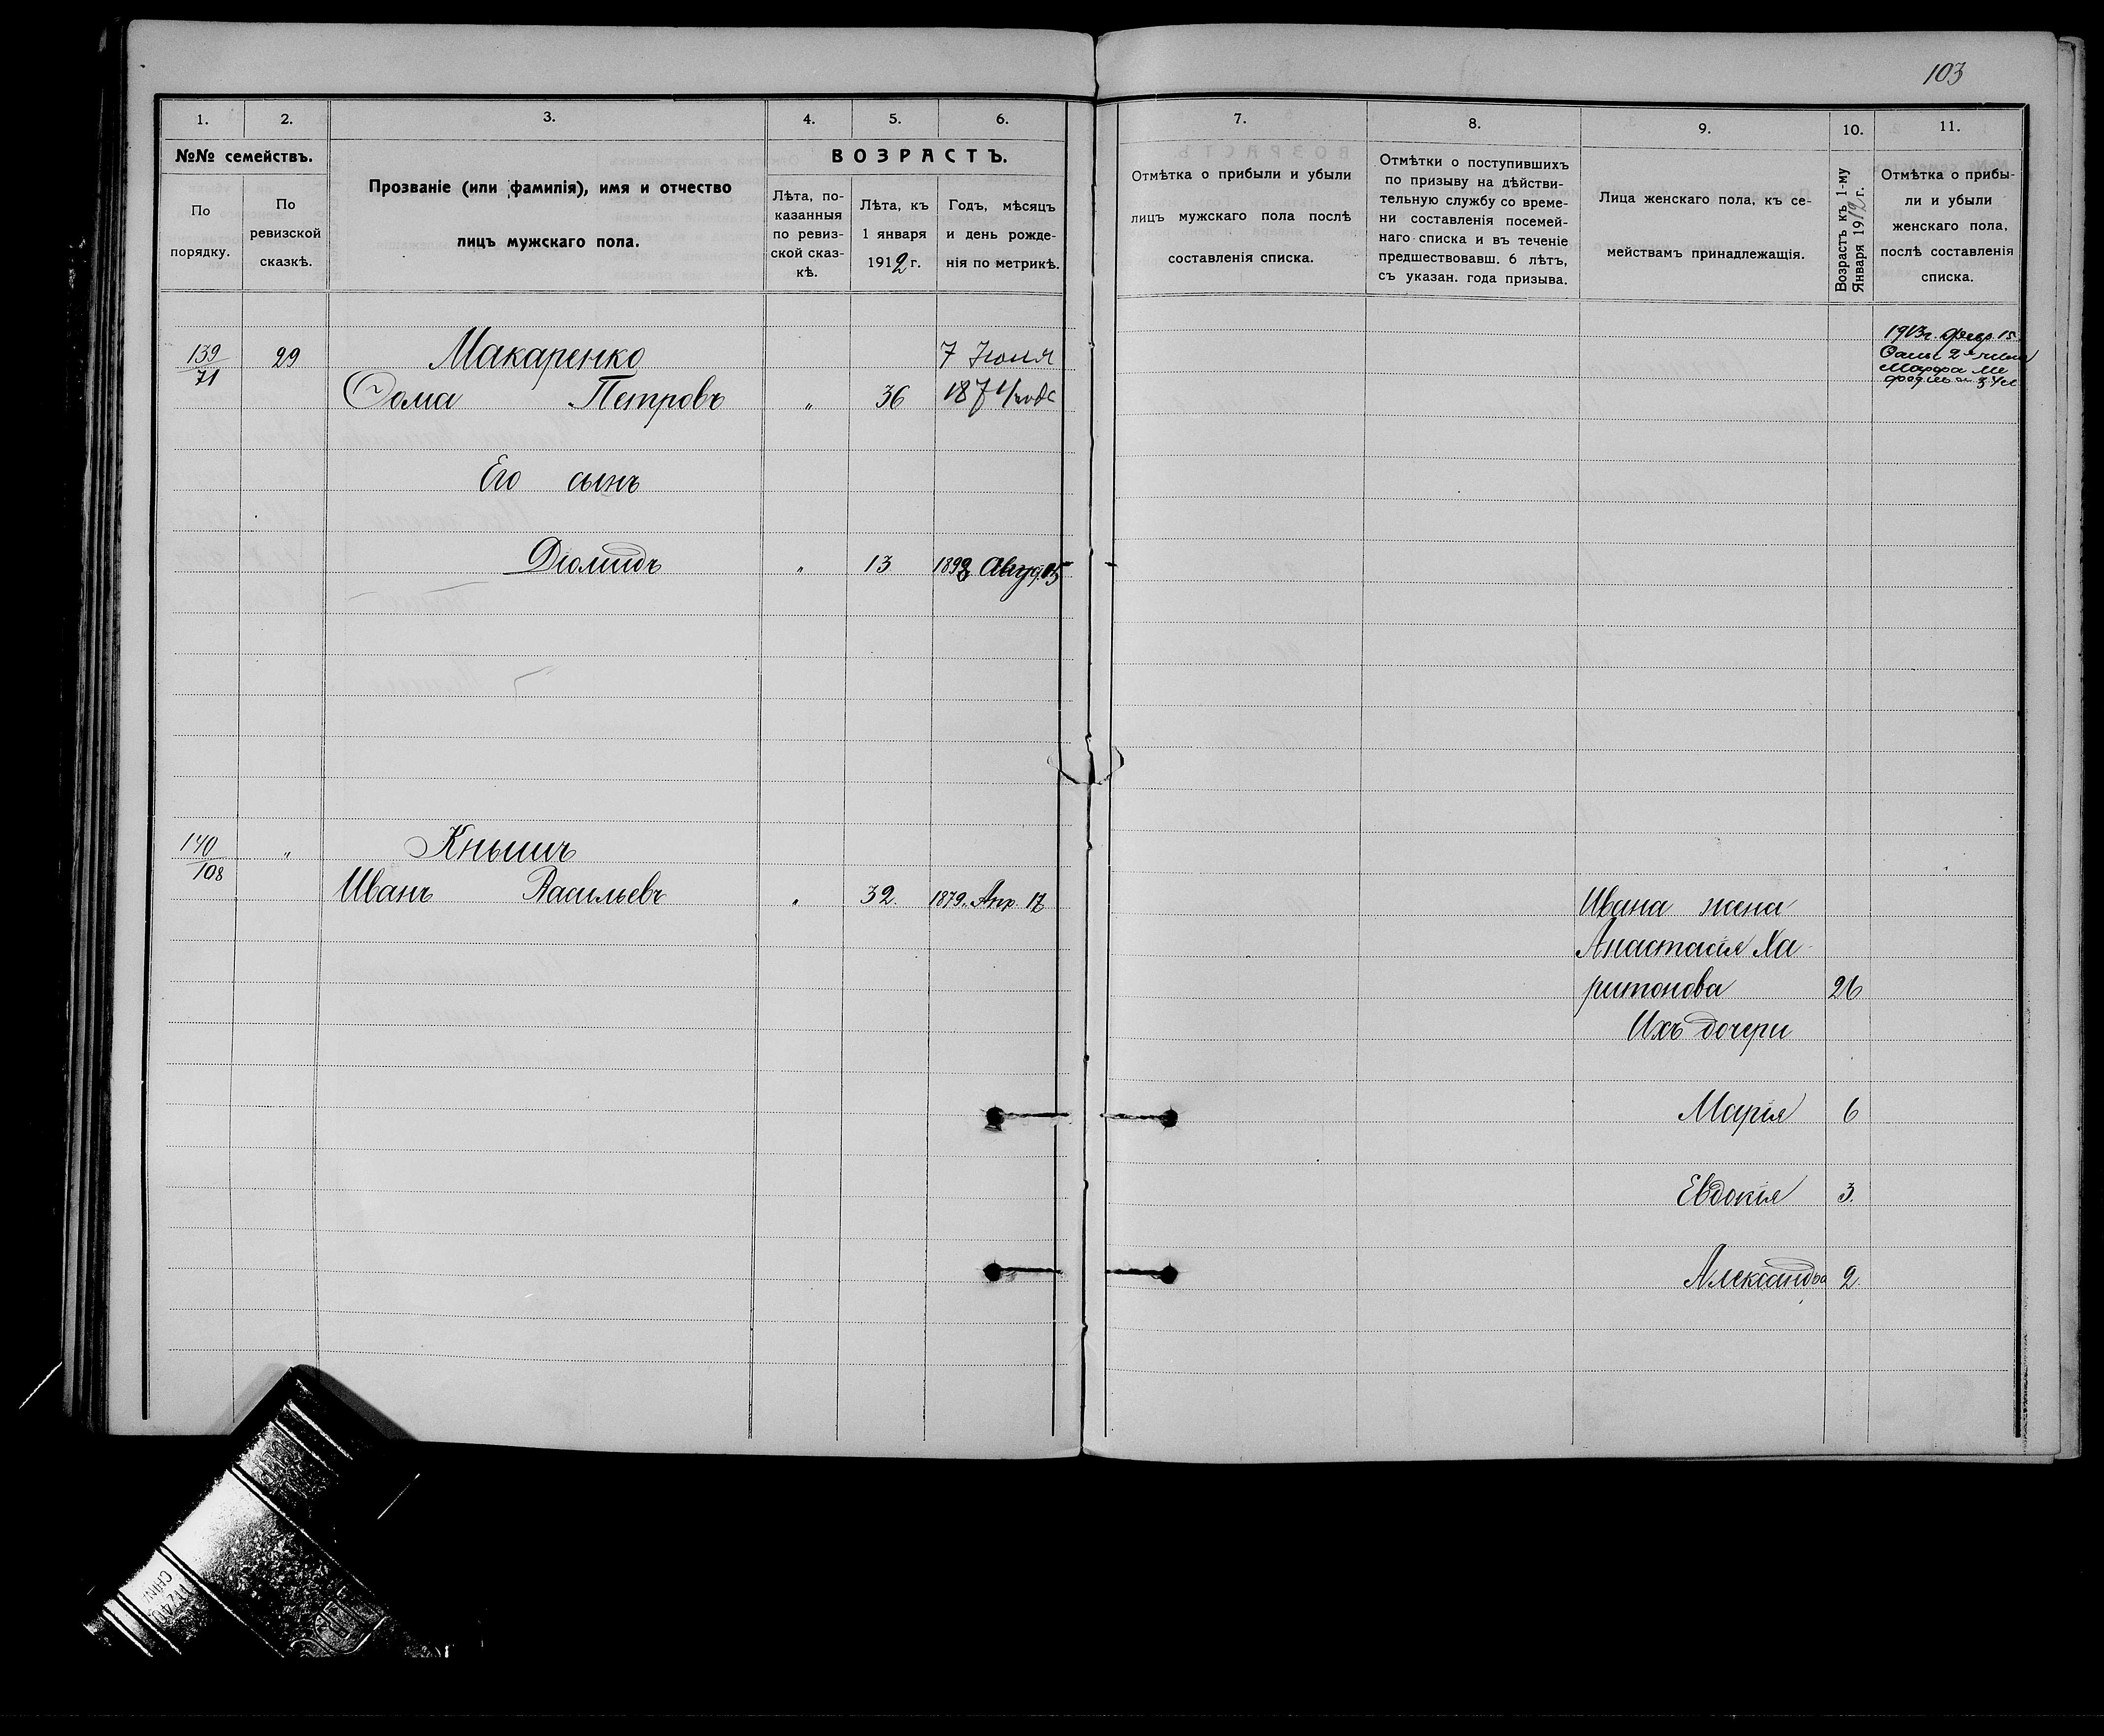 103
1. 2. 3. 4. 5. 6.
№№ семействъ.
По порядку.
По ревизской сказкѣ.
Прозваніе (или фамилія), имя и отчество
лицъ мужскаго пола.
ВОЗРАСТЪ.
Лѣта, по-
казанныя
по ревиз-
ской сказ-
кѣ.
Лѣта, къ
1 января
1912 г.
Годъ, мѣсяцъ
и день рожде-
нія по метрикѣ.
139/71 29 Макаренко 7 Іюня
Ѳома Петровъ " 36 1871 года
Его сынъ
Діомидъ " 13 1898 Авг
140/108 " Кнышъ
Иванъ Васильевъ " 32. 1879. Апр. 17
7. 8. 9. 10. 11.
Отмѣтка о прибыли и убыли
лицъ мужскаго пола послѣ
составленія списка.
Отмѣтки о поступившихъ
по призыву на дѣйстви-
тельную службу со време-
ни составленія посемей-
наго списка и въ теченіе
предшествовавш. 6 лѣтъ,
съ указан. года призыва.
Лица женскаго пола, къ се-
мействамъ принадлежащія.
Возрастъ къ 1-му
Января 1912 г.
Отмѣтка о прибы-
ли и убыли
женскаго пола,
послѣ составленія
списка.
1913 г. февр 15.
2я жена
Марфа
Ивана жена
Анастасія Ха-
ритонова 26
Ихъ дочери
Марія 6
Евдокія 3.
Александра 2.